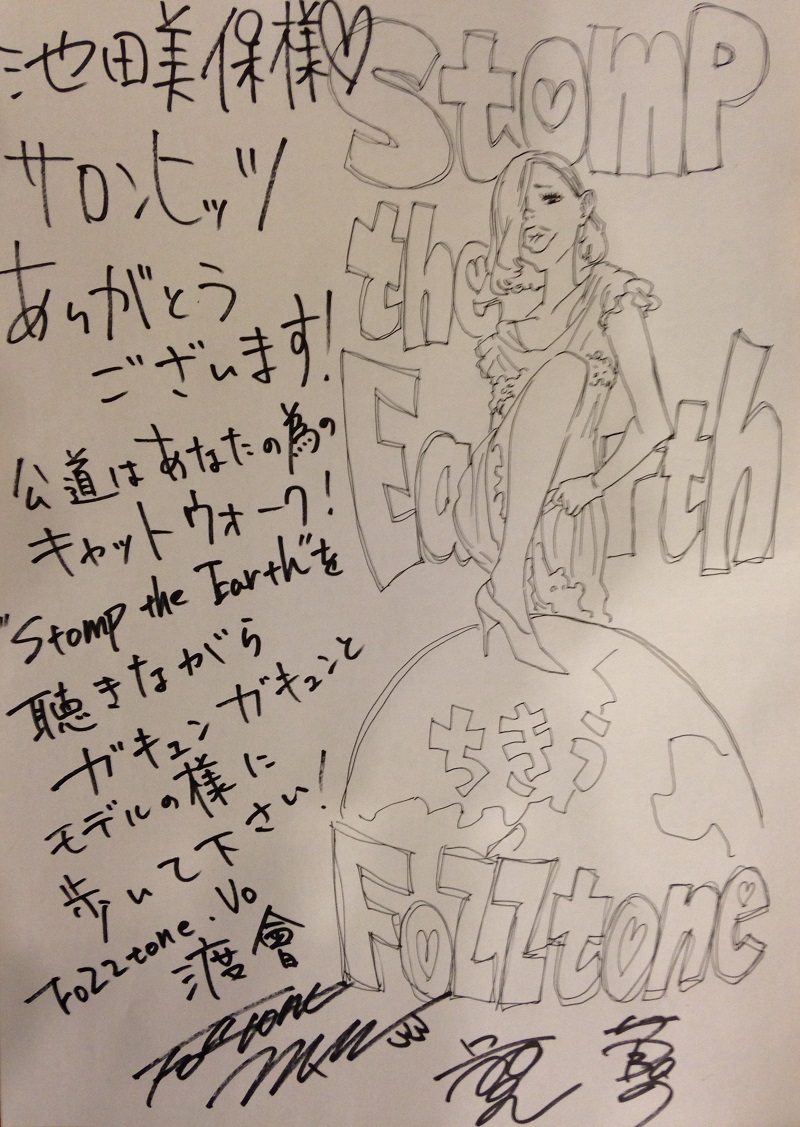 池田美保様♡
サロンヒッツ
ありがとう
ございます!
公道はあなたの為の
キャットウォーク!
"Stomp the Earth"を
聴きながら
ガキュンガキュンと
モデルの様に
歩いて下さい!
Fozztone.Vo
渡會
Stomp
the
Earth
ちきう
Fozztone
Fozztone